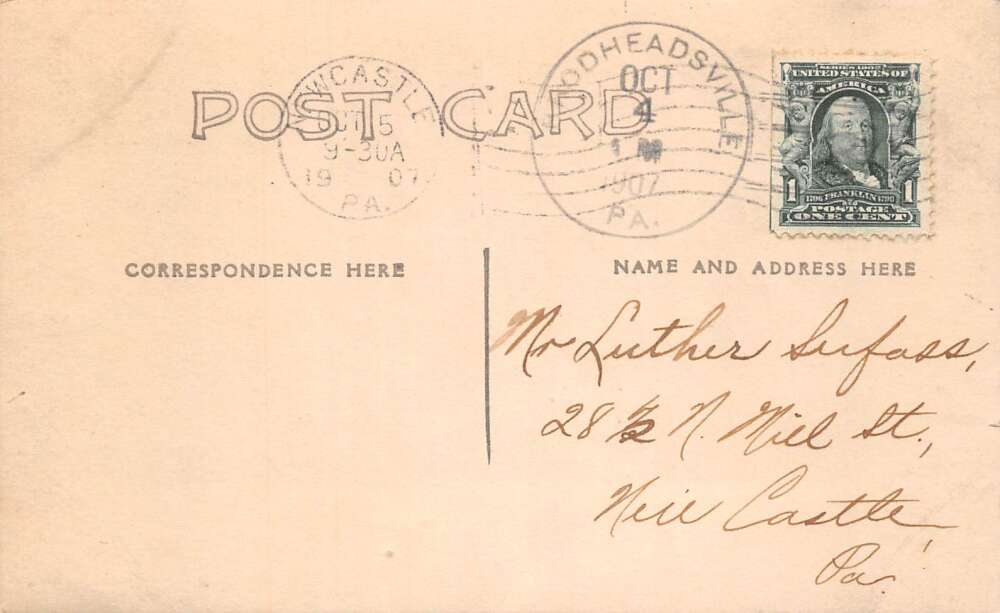 POST CARD
NEWCASTLE
OCT 5
9-30A
1907
PA.
ODHEADSVILLE
OCT
4
1907
PA.
SERIES 1902
UNITED STATES OF
AMERICA
1 1
1706 FRANKLIN 1790
POSTAGE
ONE CENT
CORRESPONDENCE HERE
NAME AND ADDRESS HERE
Mr Luther Sufass,
28 ½ N. Mill St.,
New Castle,
Pa.